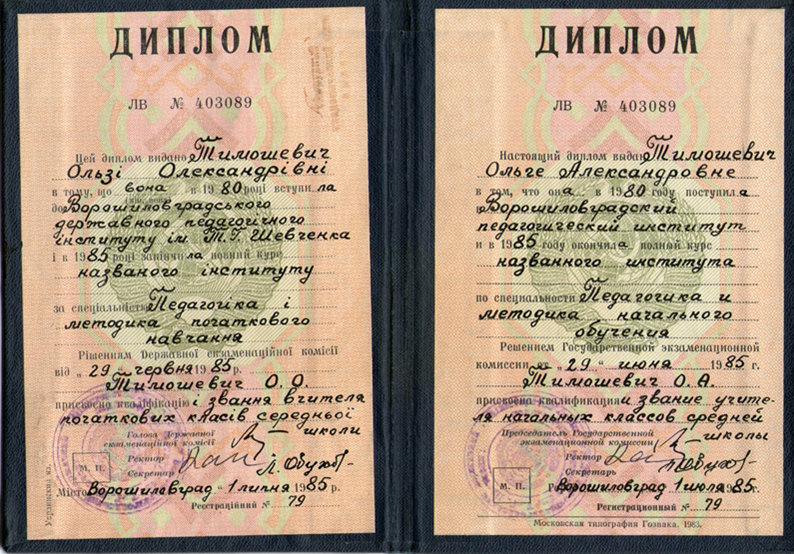 ДИПЛОМ
ЛВ № 403089
Цей диплом видано Тимошевич
Ользі Олександрівні
в тому, що вона в 1980 році вступила
до Ворошиловградського
державного педагогічного
інституту ім Т.Г. Шевченка
і в 1985 році закінчила повний курс
названого інституту
за спеціальністю Педагогіка і
методика початкового
навчання
Рішенням Державної екзаменаційної комісії
від „29" червня 1985 р.
Тимошевич О. О.
присвоєна кваліфікація і звання вчителя
початкових класів середньої
школи
Голова Державної
екзаменаційної комісії
Ректор
Секретар
М. П.
Місто Ворошиловград „1 липня 1985 р.
Реєстраційний № 79
ДИПЛОМ
ЛВ № 403089
Настоящий диплом выдан Тимошевич
Ольге Александровне
в том, что она в 1980 году поступила
в Ворошиловградский
педагогический институт
и в 1985 году окончила полный курс
названного института
по специальности Педагогика и
методика начального
обучения
Решением Государственной экзаменационной
комиссии „29" июня 1985 г.
Тимошевич О. А.
присвоена квалификация и звание учите-
ля начальных классов средней
школы
Председатель Государственной
экзаменационной комиссии
Ректор
Секретарь
М. П.
Ворошиловград 1 июля 1985 г.
Регистрационный № 79
Московская типография Гознака. 1983.